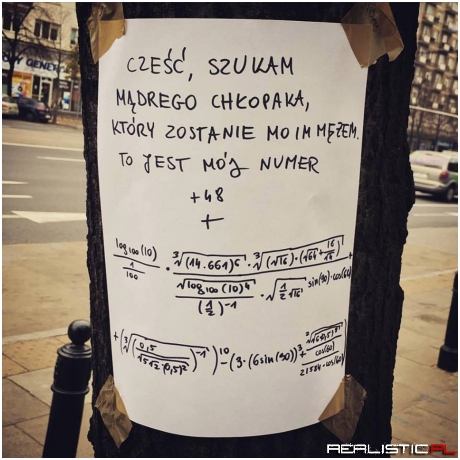 CZEŚĆ, SZUKAM
MĄDREGO CHŁOPAKA,
KTÓRY ZOSTANIE MOIM MĘŻEM.
TO JEST MÓJ NUMER
+48
+
log100(10)
1/100
· ∛(14.661)⁶ · ∛(√16)·(√64+16/√16)
√log100(10)⁴
(1/2)⁻¹
· √1/2√16 sin(90)·cos(60)
)¹⁰-(3·(6sin(90))³+
cos(60)
21584·cos(60)
REALISTIC.PL